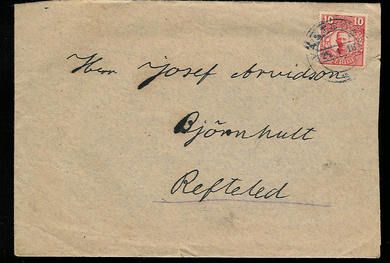 10 10
Herr Josef Arvidson
Björnhult
Refteled